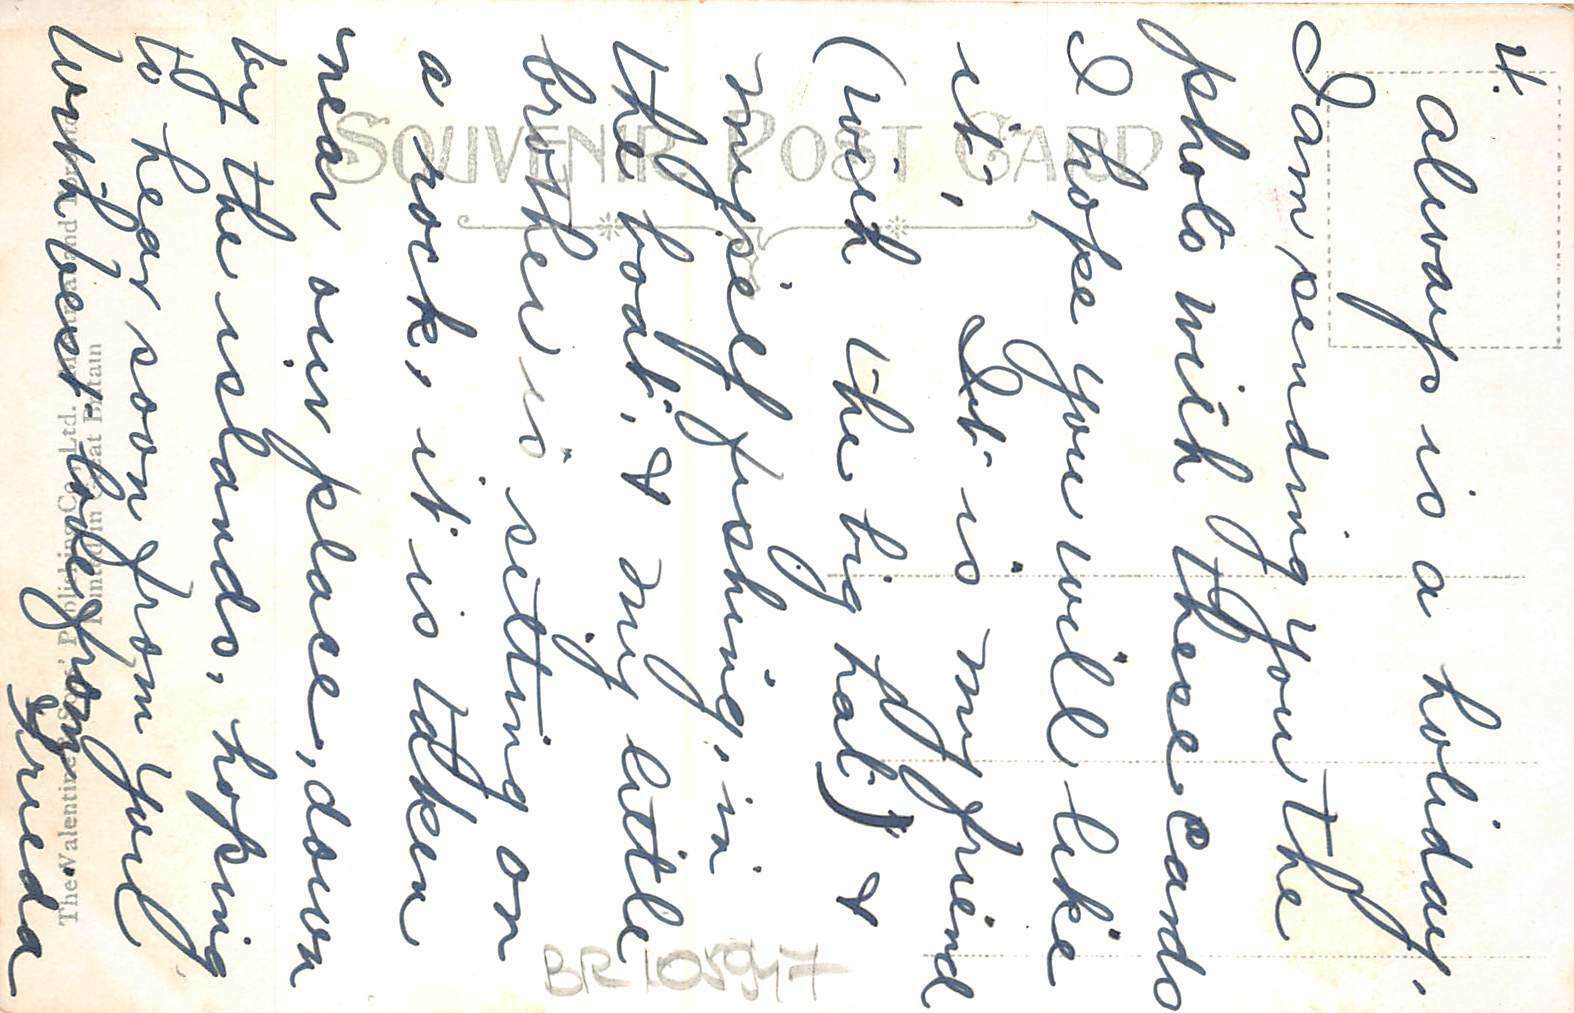 4.
always is a holiday.
I am sending you the
photo with these cards
I hope you will like
it, It is my friend
(with the big hat) &
myself fishing, in
the boat, & my little
brother is sitting on
a rock, it is taken
near our place, down
by the islands, hoping
to hear soon from you
with best love from
Frieda
SOUVENIR POST CARD
The Valentine & Sons' Publishing Co. Ltd. Montreal and Toronto
Printed in Great Britain
BR105947